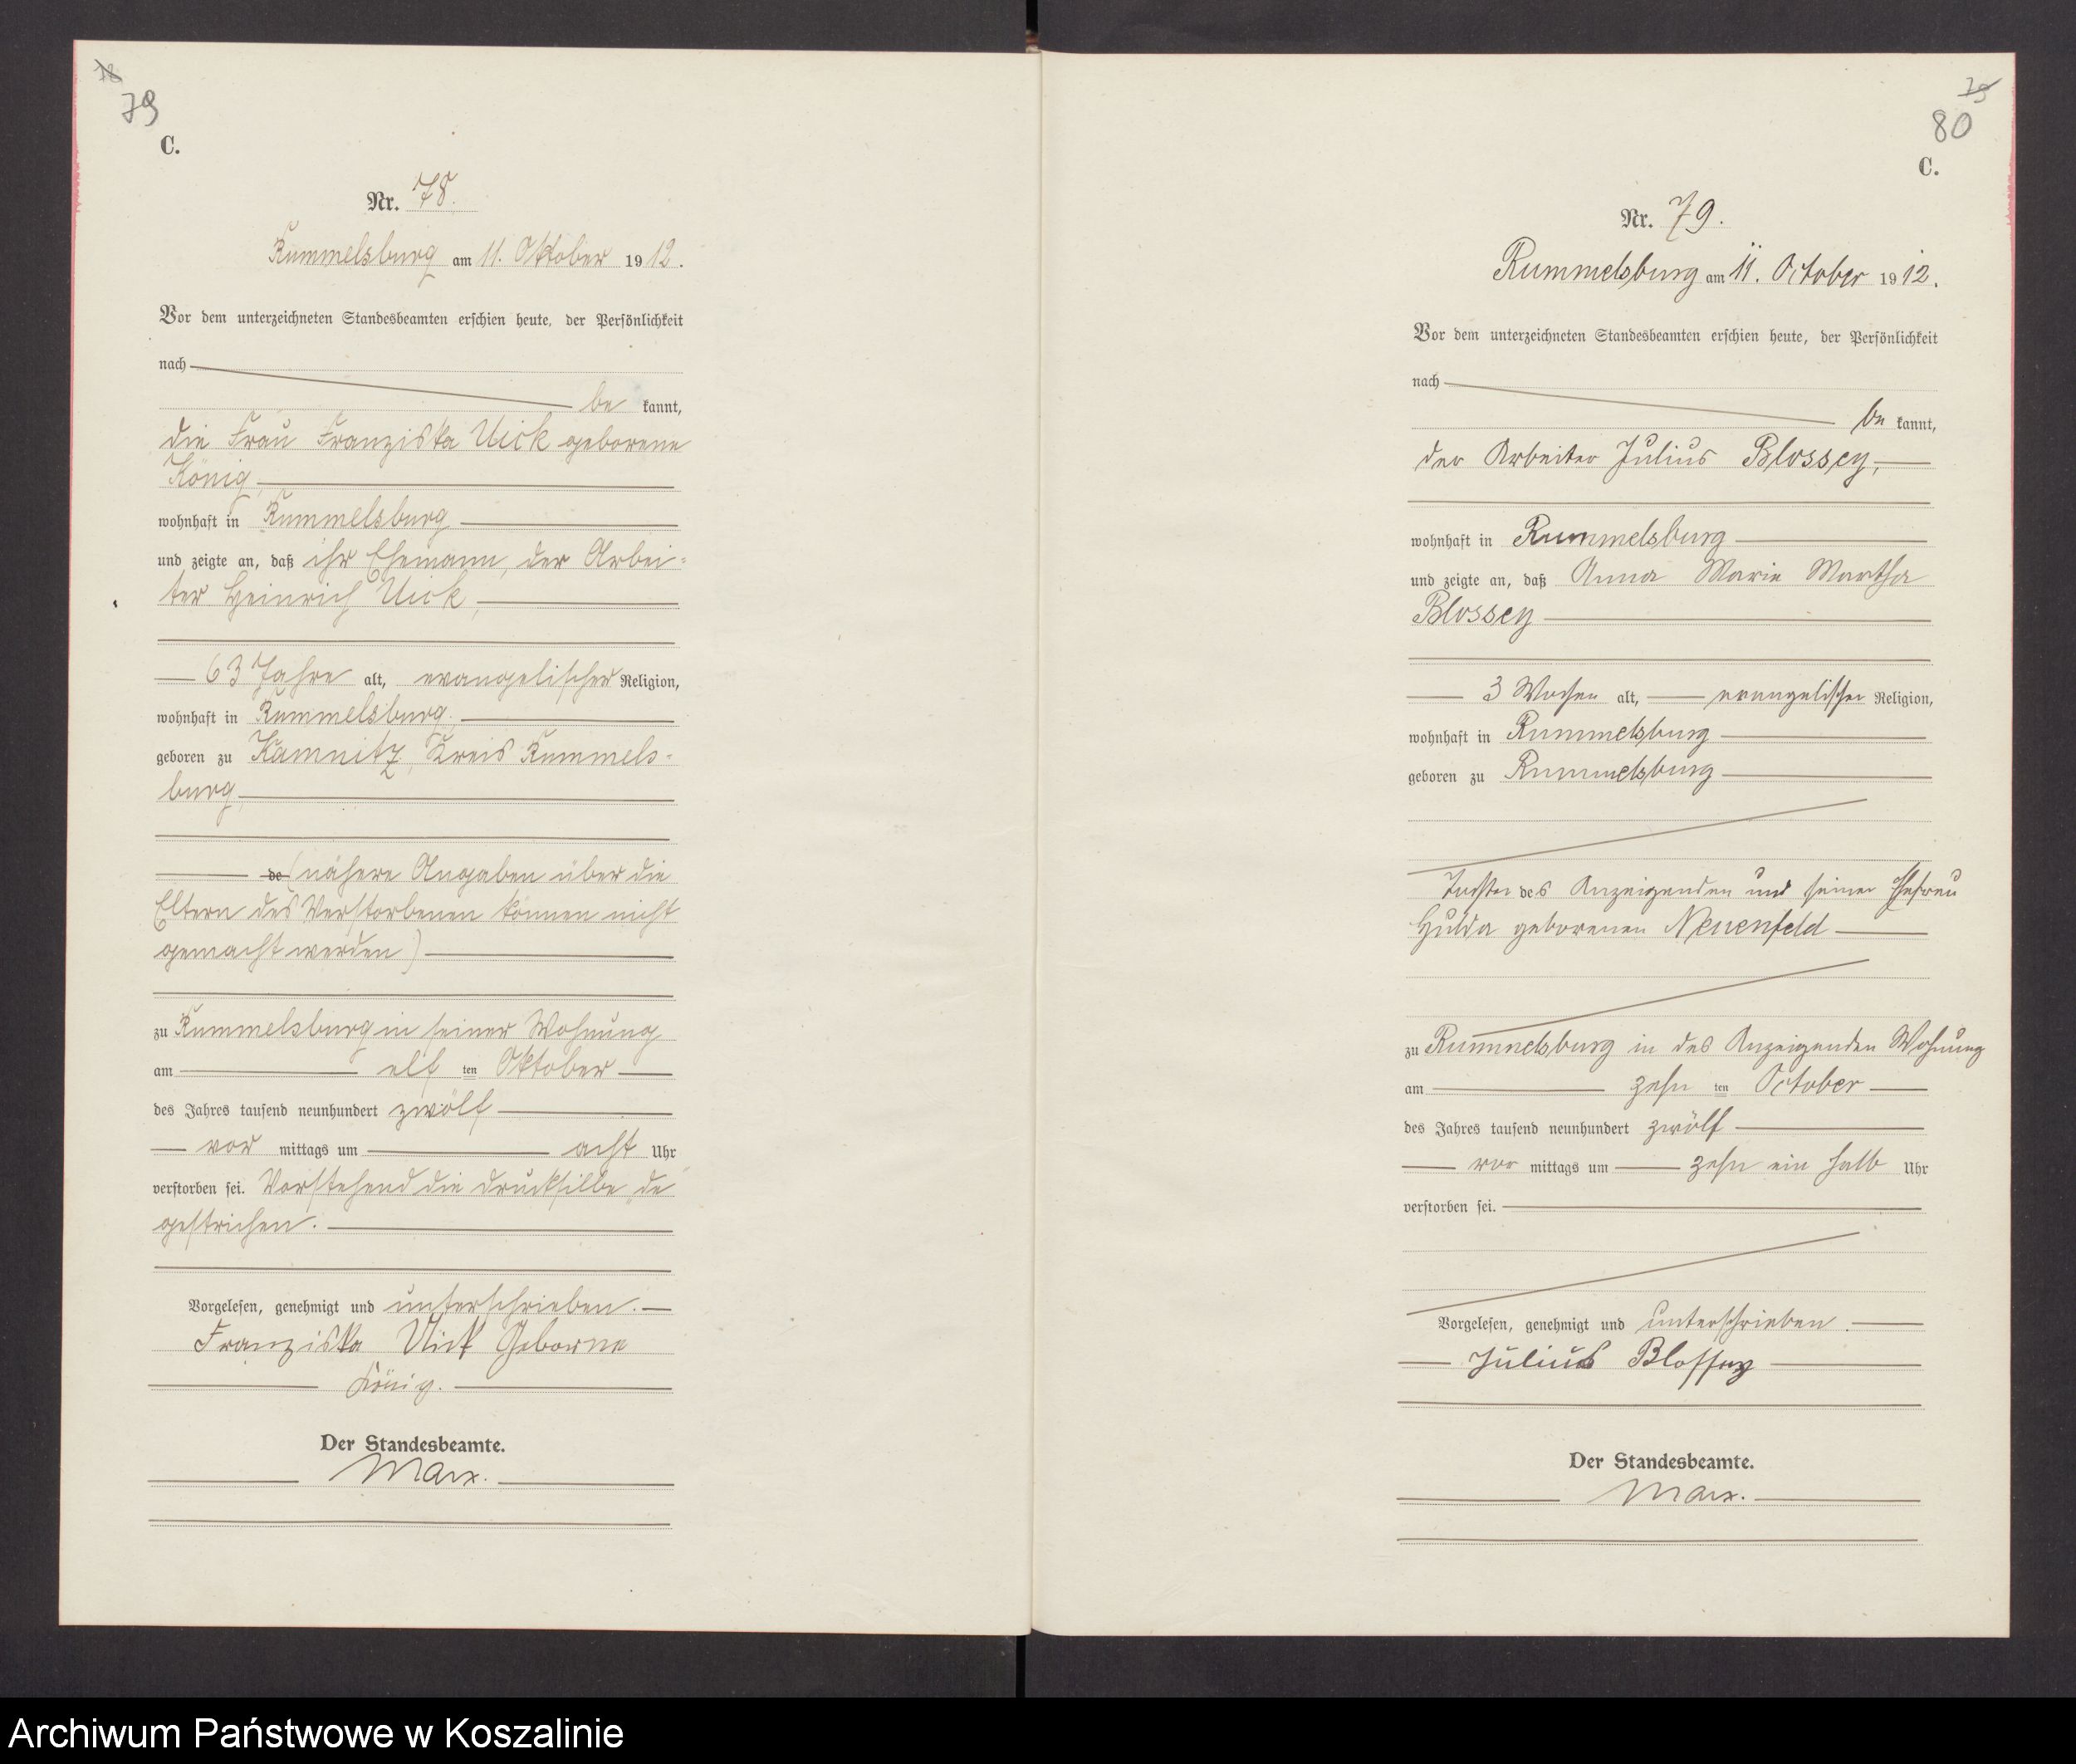 79
C.
Nr. 78.
Rummelsburg am 11. Oktober 1912.
Vor dem unterzeichneten Standesbeamten erschien heute, der Persönlichkeit
nach
be kannt,
die Frau Franziska Uick geborene
König,
wohnhaft in Rummelsburg
und zeigte an, daß ihr Ehemann, der Arbei-
ter Heinrich Uick,
63 Jahre alt, evangelischer Religion,
wohnhaft in Rummelsburg,
geboren zu Kamnitz, Kreis Rummels-
burg,
de (nähere Angaben über die
Eltern des Verstorbenen können nicht
gemacht werden)
zu Rummelsburg in seiner Wohnung
am elf ten Oktober
des Jahres tausend neunhundert zwölf
vor mittags um acht Uhr
verstorben sei. Vorstehend die Drucksilbe „de"
gestrichen.
Vorgelesen, genehmigt und unterschrieben.
Franziska Uick Geborne
König.
Der Standesbeamte.
Marx.
79
80
C.
Nr. 79.
Rummelsburg am 11. October 1912.
Vor dem unterzeichneten Standesbeamten erschien heute, der Persönlichkeit
nach
be kannt,
der Arbeiter Julius Blossey,
wohnhaft in Rummelsburg
und zeigte an, daß Anna Marie Martha
Blossey
3 Wochen alt, evangelischer Religion,
wohnhaft in Rummelsburg
geboren zu Rummelsburg
Tochter des Anzeigenden und seiner Ehefrau
Hulda geborenen Neuenfeld
zu Rummelsburg in des Anzeigenden Wohnung
am zehn ten October
des Jahres tausend neunhundert zwölf
vor mittags um zehn ein halb Uhr
verstorben sei.
Vorgelesen, genehmigt und unterschrieben.
Julius Blossey
Der Standesbeamte.
Marx.
Archiwum Państwowe w Koszalinie